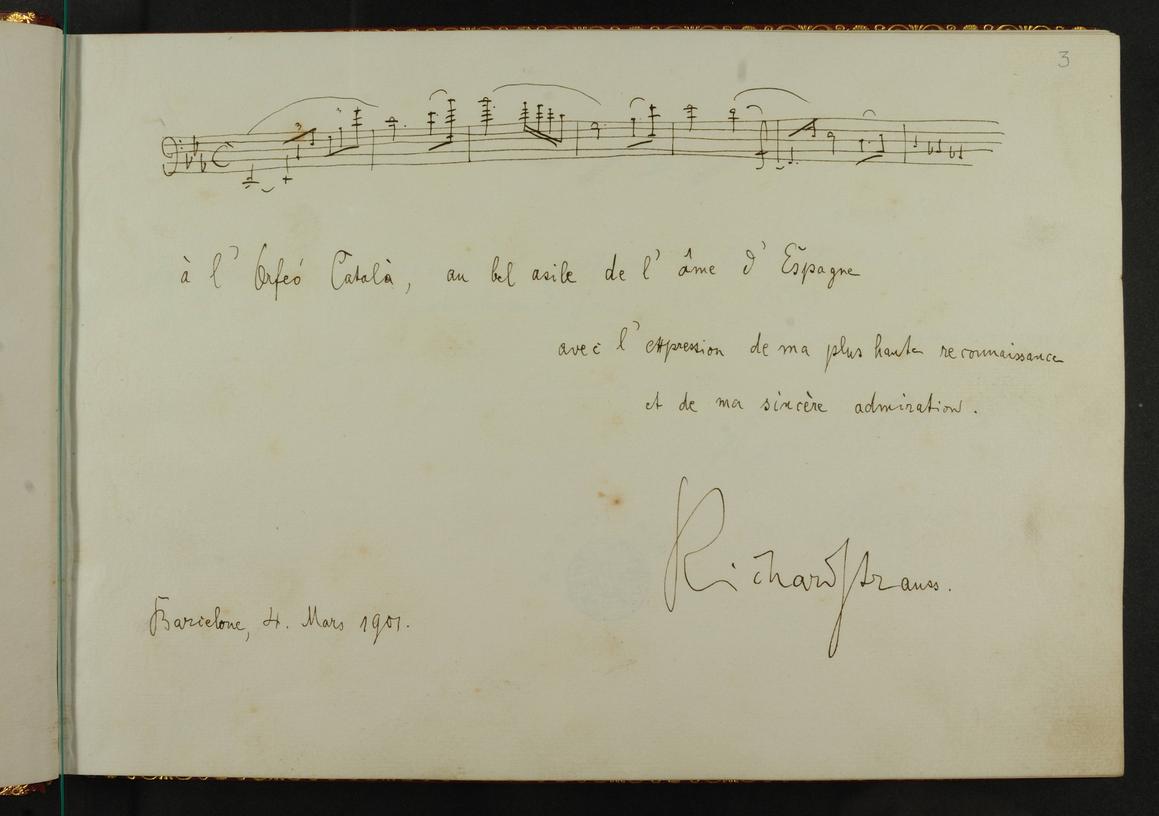 3
à l' Orfeó Català, au bel asile de l' âme d' Espagne
avec l' expression de ma plus haute reconnaissance
et de ma sincère admiration.
Richard Strauss.
Barcelone, 4. Mars 1901.